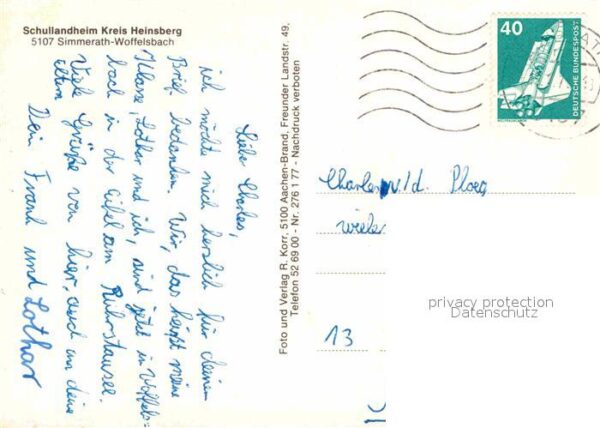 Schullandheim Kreis Heinsberg
5107 Simmerath-Woffelsbach
Liebe Charles,
ich möchte mich herzlich für deinen
Brief bedanken. Wir, das heißt meine
Klasse, Lothar und ich, sind jetzt in Woffels=
bach in der Eifel am Ruhrstausee.
Viele Grüße von hier, auch an deine
Eltern
Dein Frank und Lothar
Foto und Verlag R. Korr. 5100 Aachen-Brand, Freunder Landstr. 49,
Telefon 52 69 00 - Nr. 276 1 77 - Nachdruck verboten
40
DEUTSCHE BUNDESPOST
Charles v/d. Ploeg
13
privacy protection
Datenschutz